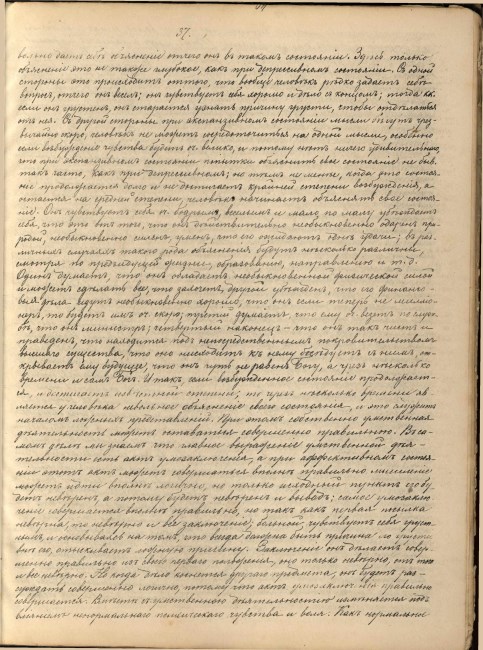 37.
вольно дать себѣ объясненіе отчего онъ въ такомъ состояніи. Здѣсь только
объясненіе это не такое глубокое, какъ при депрессивномъ состояніи. Съ одной
стороны это происходитъ оттого, что вообще человѣкъ рѣдко задаетъ себѣ
вопросъ, отчего онъ веселъ; онъ чувствуетъ себя хорошо и дѣло съ концомъ; тогда какъ
если онъ грустенъ, онъ старается узнать причину грусти, чтобы отдѣлаться
отъ нея. Съ другой стороны при экспансивномъ состояніи мысли бѣгутъ чрез-
вычайно скоро, человѣкъ не можетъ сосредоточиться на одной мысли, особенно
если возбужденіе чувства будетъ оч. велико, и потому нѣтъ ничего удивительнаго,
что при экспансивномъ состояніи попытки объяснить свое состояніе не быв.
такъ часто, какъ при депрессивномъ; но тѣмъ не менѣе, когда это состоя-
ніе продолжается долго и не достигаетъ крайней степени возбужденія, а
остается на средней степени, человѣкъ начинаетъ объяснять свое состоя-
ніе. Онъ чувствуетъ себя бодрымъ, веселымъ и мало по малу убѣждается
что это отъ того, что онъ дѣйствительно необыкновенно одаренъ при-
родой, необыкновенно силенъ, уменъ, что его ожидаютъ удачи; въ раз-
личныхъ случаяхъ такого рода объясненія будутъ нѣсколько различны
смотря по предыдущей жизни, образованію, направленію и т. д.
Одинъ думаетъ, что онъ обладаетъ необыкновенной физической силой
и можетъ сдѣлать все, что захочетъ, другой убѣжденъ, что его финансо-
выя дѣла идутъ необыкновенно хорошо, что онъ если теперь не миллio-
неръ, то будетъ имъ оч. скоро; третій думаетъ, что
онъ министръ; четвертый наконецъ – что онъ такъ чистъ и
праведенъ, что находится подъ непосредственнымъ покровительствомъ
высшаго существа, что оно нисходитъ къ нему бесѣдуетъ съ нимъ, от-
крываетъ ему будущее, что онъ чуть не равенъ Богу, а чрезъ нѣсколько
времени и самъ Богъ. И такъ если возбужденное состояніе продолжает-
ся, и достигаетъ извѣстной степени, то чрезъ нѣсколько времени яв-
ляется у человѣка невольное объясненіе своего состоянія, и это служитъ
началомъ ложныхъ представленій. При этомъ собственно умственная
дѣятельность можетъ оставаться совершенно правильною. Въ са-
момъ дѣлѣ мы знаемъ что главное выраженіе умственной дѣя-
тельности есть актъ умозаключенія, а при аффективномъ состоя-
ніи этотъ актъ можетъ совершаться вполнѣ правильно мышленіе
можетъ идти вполнѣ логично, но только исходный пунктъ его бу-
детъ невѣренъ, а потому будетъ невѣренъ и выводъ; самое умозаклю-
ченіе совершается вполнѣ правильно, но такъ какъ первая посылка
невѣрна, то невѣрно и все заключеніе, больной, чувствуетъ себя груст-
нымъ и основываясь на томъ, что всегда должна быть причина грусти
отыскиваетъ ложную причину. Заключеніе онъ дѣлаетъ совер-
шенно правильно изъ этого перваго положенія, оно только невѣрно,
Но когда дѣло коснется другаго предмета, онъ будетъ раз-
суждать совершенно логично, потому что актъ умозаключенія правильно
совершается. Вмѣстѣ съ умственною дѣятельностію измѣняется подъ
вліяніемъ ненормальнаго психическаго чувства и воля. Какъ нормальное